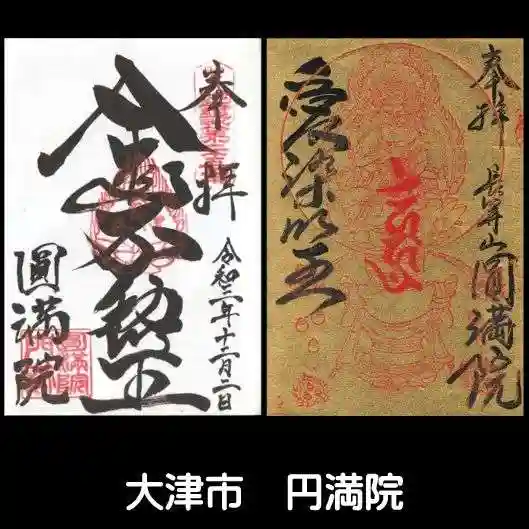 奉拝
令和三年十二月二日
金色不動
圓満院
奉拝
長等山
圓満院
愛染明王
大津市　円満院